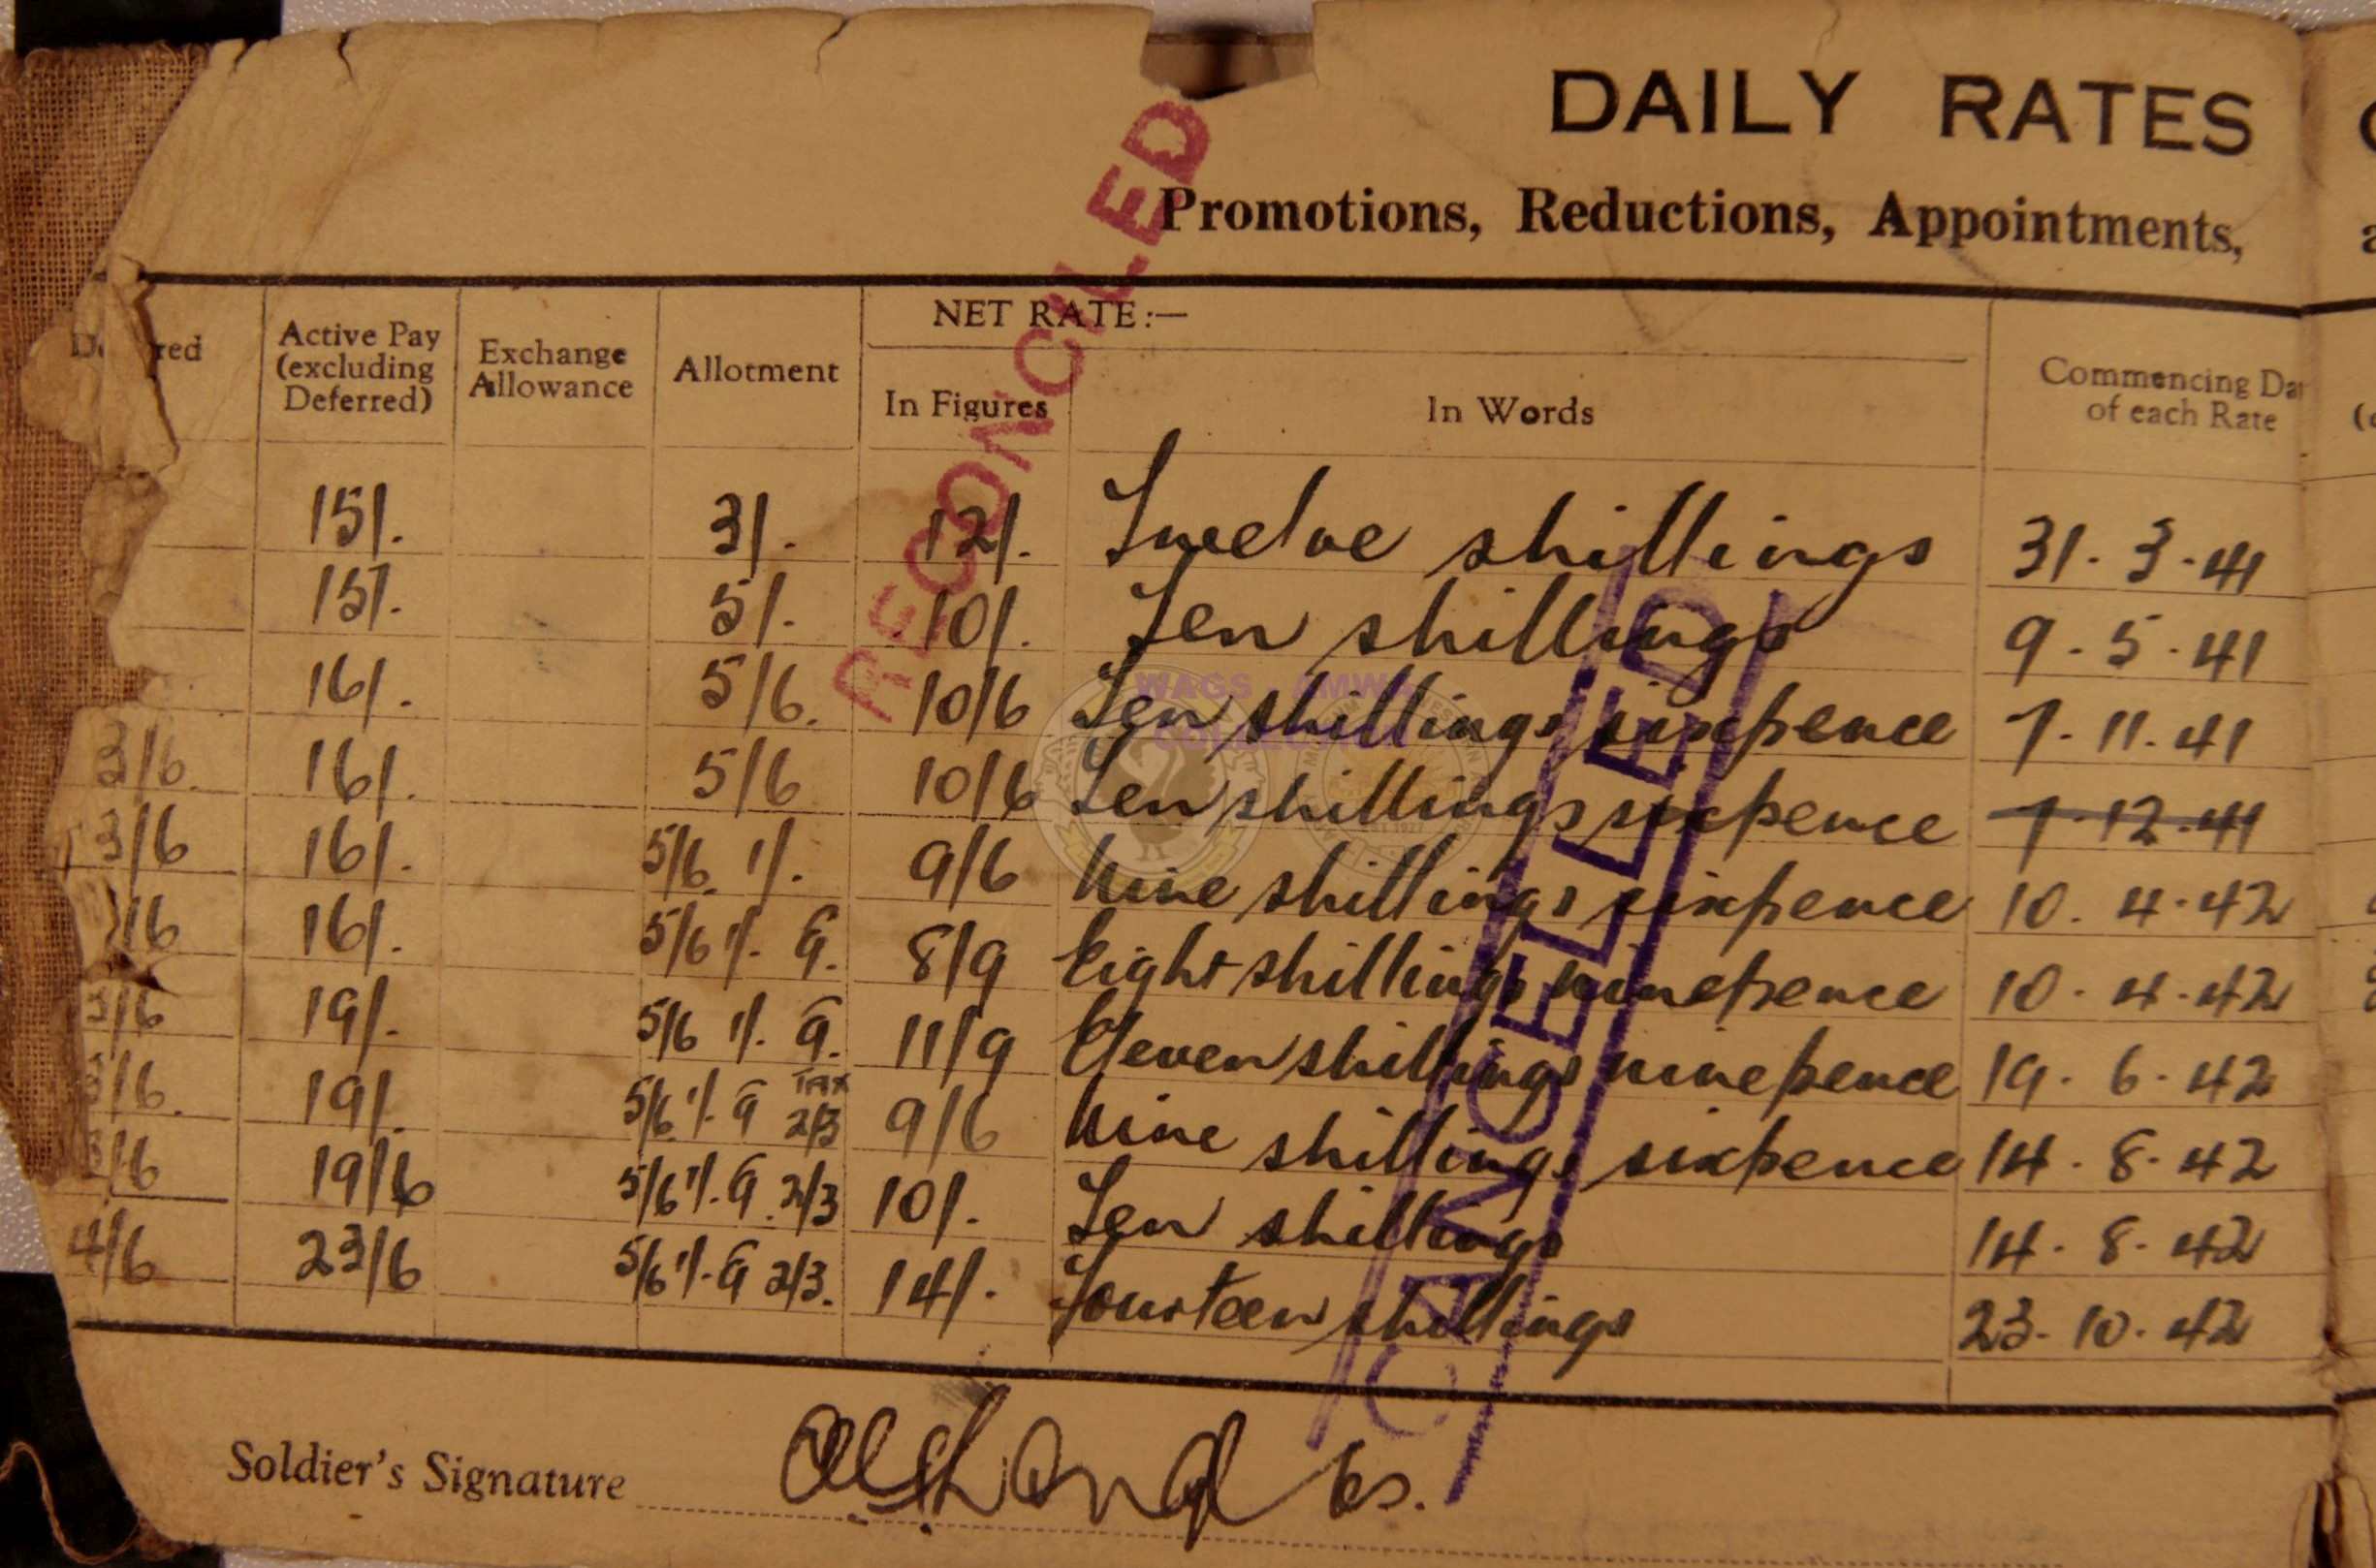 DAILY RATES
Promotions, Reductions, Appointments,
RECONCILED
NET RATE:—
Active Pay (excluding Deferred) Exchange Allowance Allotment In Figures In Words Commencing Da of each Rate
15/. 3/. 12/. Twelve shillings 31.3.41
15/. 5/. 10/. Ten shillings 9.5.41
16/. 5/6. 10/6 Ten shillings sixpence 7.11.41
3/6. 16/. 5/6 10/6 Ten shillings sixpence 7.12.41
3/6 16/. 5/6. 1/. 9/6 Nine shillings sixpence 10.4.42
/6 16/. 5/6 1/. 9. 8/9 Eight shillings ninepence 10.4.42
3/6 19/. 5/6 1/. 9. 11/9 Eleven shillings ninepence 19.6.42
3/6. 19/. 5/6. 1/. 9 TAX 2/3 9/6 Nine shillings sixpence 14.8.42
3/6 19/6 5/6 1/. 9. 2/3 10/. Ten shillings 14.8.42
4/6 23/6 5/6 1/. 9 2/3. 14/. Fourteen shillings 23.10.42
CANCELLED
WAGS AMWA
Soldier's Signature